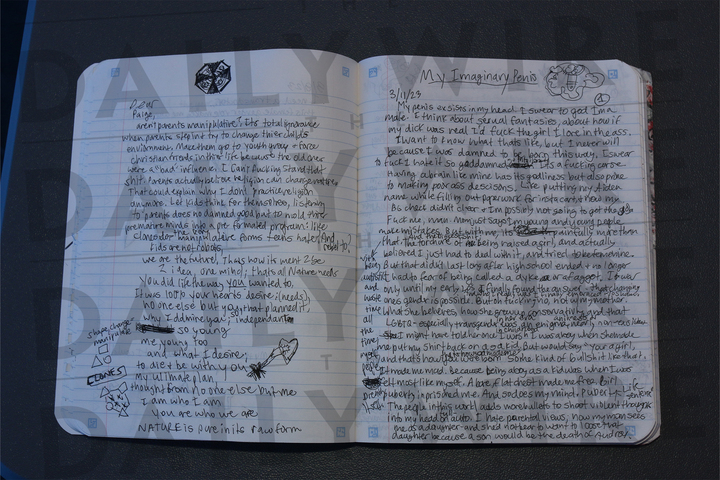 DAILY WIRE
Dear
Paige,
aren't parents manipulative? It's total ignorance
when parents step in & try to change their child's
enviorment. Make them go to youth group & force
christian friends in their life because the old one
were a "bad" influence. I can't fucking stand that
shit. Parents actually believe religion can change
That could explain why I don't practice religion
anymore. Let kids think for themselves, listening
to parents does no damned good but to mold their
premature minds into a pre formated program: like
clones do- manipulative forms
kids are not robots,
we are the future, Thats how its ment 2 be
2 idea, one mind; thats all Nature needs
You did like the way you wanted to,
It was 100% your hearts desire (needs)
no one else but you that planned it,
why I admire you, so independant
so young
me young too
and what I desire;
to die & be with
My ultimate plan,
thought from no one else but me
I am who I am
you are who we are
NATURE is pure in its raw form
shape change
CLONES
My Imaginary Penis
3/11/23
1
My penis exsises in my head. I swear to god I'm a
male. I think about sexual fantasies, about how if
my dick was real I'd fuck the girl I love in the ass.
I want to know what thats like, but I never will
because I was damned to be born this way. I swear
to fuck I hate it so goddamned It's a fucking curse.
Having a brain like mine has its godliness but also prone
to making poor ass descisons. Like putting my Aiden
name while filling out paperwork for
BG check didn't clear & I'm possibly not going to get the job
Fuck me, man. Mom just says I'm young and young people
make mistakes. But with me, its painfully more than
that. The torture of being raised a girl, and actually
believed I just had to deal with it, and tried to be feminine.
But that didn't last long after high school ended & no longer
had to fear of being called a dyke or a faggot. I
only until my early 20s I finally found the answer- that changing
ones gender is possible. But to fucking no, not my mother.
What she believes, how she grew up conservativly and that
LGBTQ- especially transgender was an enigma,
I might have told her
me put my shirt back on as a kid, but would say "your a girl,
and thats how you were born" Some kind of bullshit like that.
It made me mad. Because being a boy as a kid was when I was
most like myself. A flat chest made me free. Girl
puberty inprisoned me. And so does my mind.
The people in this world adds more bullets to shoot violent thoughts
into my head
me as a daughter- and she'd not bear to want to lose that
daughter because a son would be the death of Audrey.
all
the
time